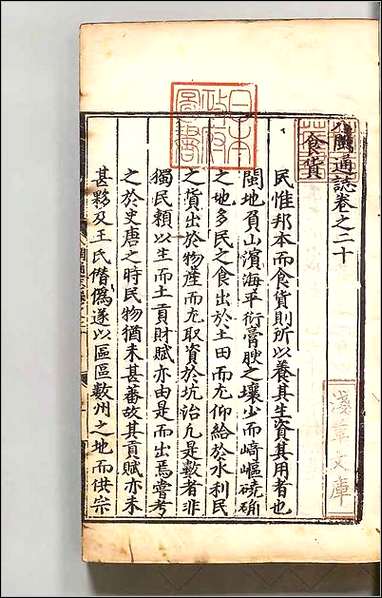 八閩通誌卷之二十
食貨
民惟邦本而食貨則所以養其生資其用者也
閩地負山濱海平衍膏腴之壤少而崎嶇磽确
之地多民之食出於土田而尤仰給於水利民
之貨出於物產而尤取資於坑治凢是數者非
獨民賴以生而土貢財賦亦由是而出焉嘗考
之於史唐之時民物猶未甚蕃故其貢賦亦未
甚夥及王氏僭僞遂以區區數州之地而供宗
日本
政府
圖書
淺草文庫